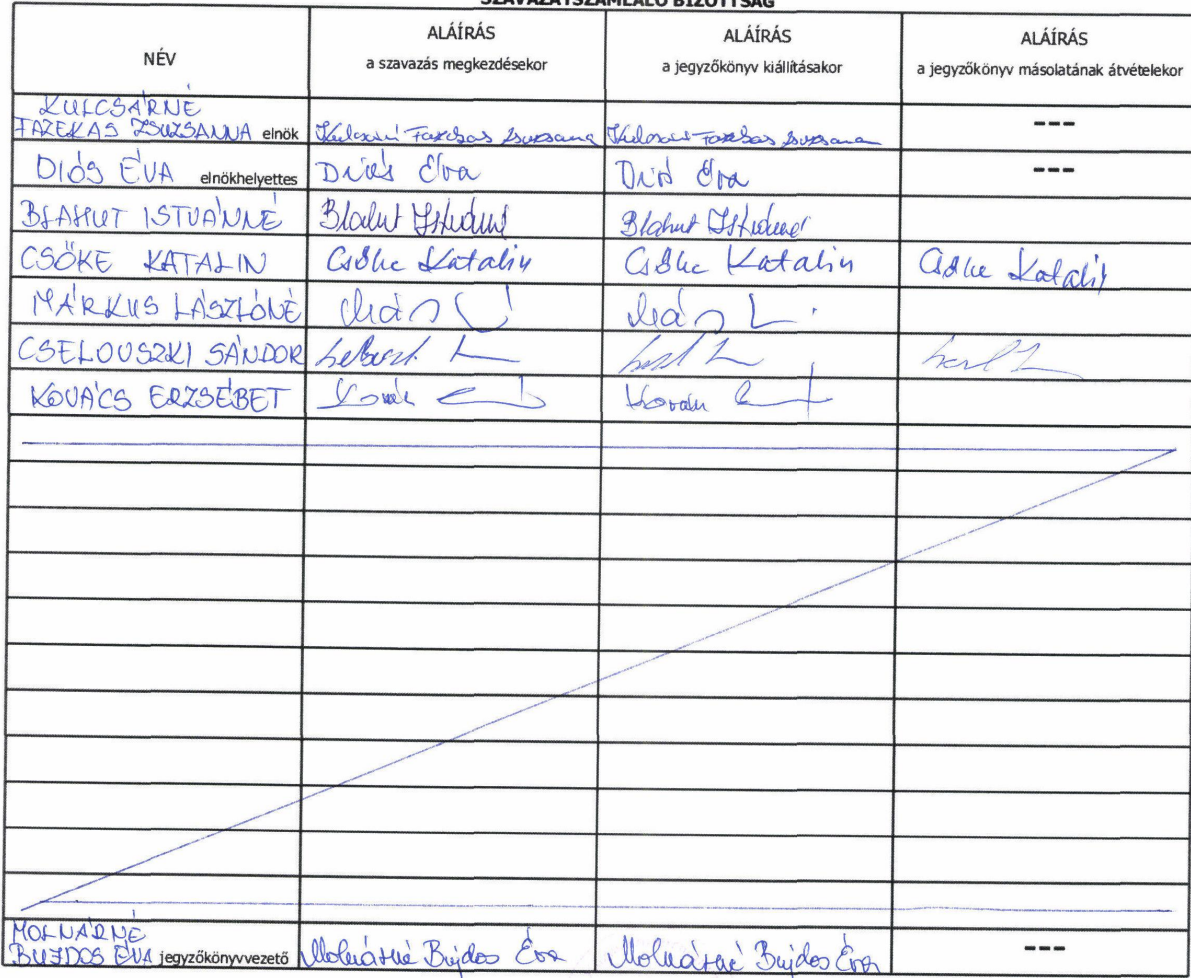 SZAVAZATSZÁMLÁLÓ BIZOTTSÁG
NÉV
ALÁÍRÁS
a szavazás megkezdésekor
ALÁÍRÁS
a jegyzőkönyv kiállításakor
ALÁÍRÁS
a jegyzőkönyv másolatának átvételekor
KULCSÁRNÉ
FAZEKAS ZSUZSANNA elnök Kulcsárné Fazekas Zsuzsanna Kulcsárné Fazekas Zsuzsanna ---
DIÓS ÉVA elnökhelyettes Diós Éva Diós Éva ---
BLAHUT ISTVÁNNÉ Blahut Istvánné Blahut Istvánné
CSŐKE KATALIN Csőke Katalin Csőke Katalin Csőke Katalin
MÁRKUS LÁSZLÓNÉ
CSELOVSZKI SÁNDOR
KOVÁCS ERZSÉBET Kovács Kovács
MOLNÁRNÉ
BUJDOS ÉVA jegyzőkönyvvezető Molnárné Bujdos Éva Molnárné Bujdos Éva ---